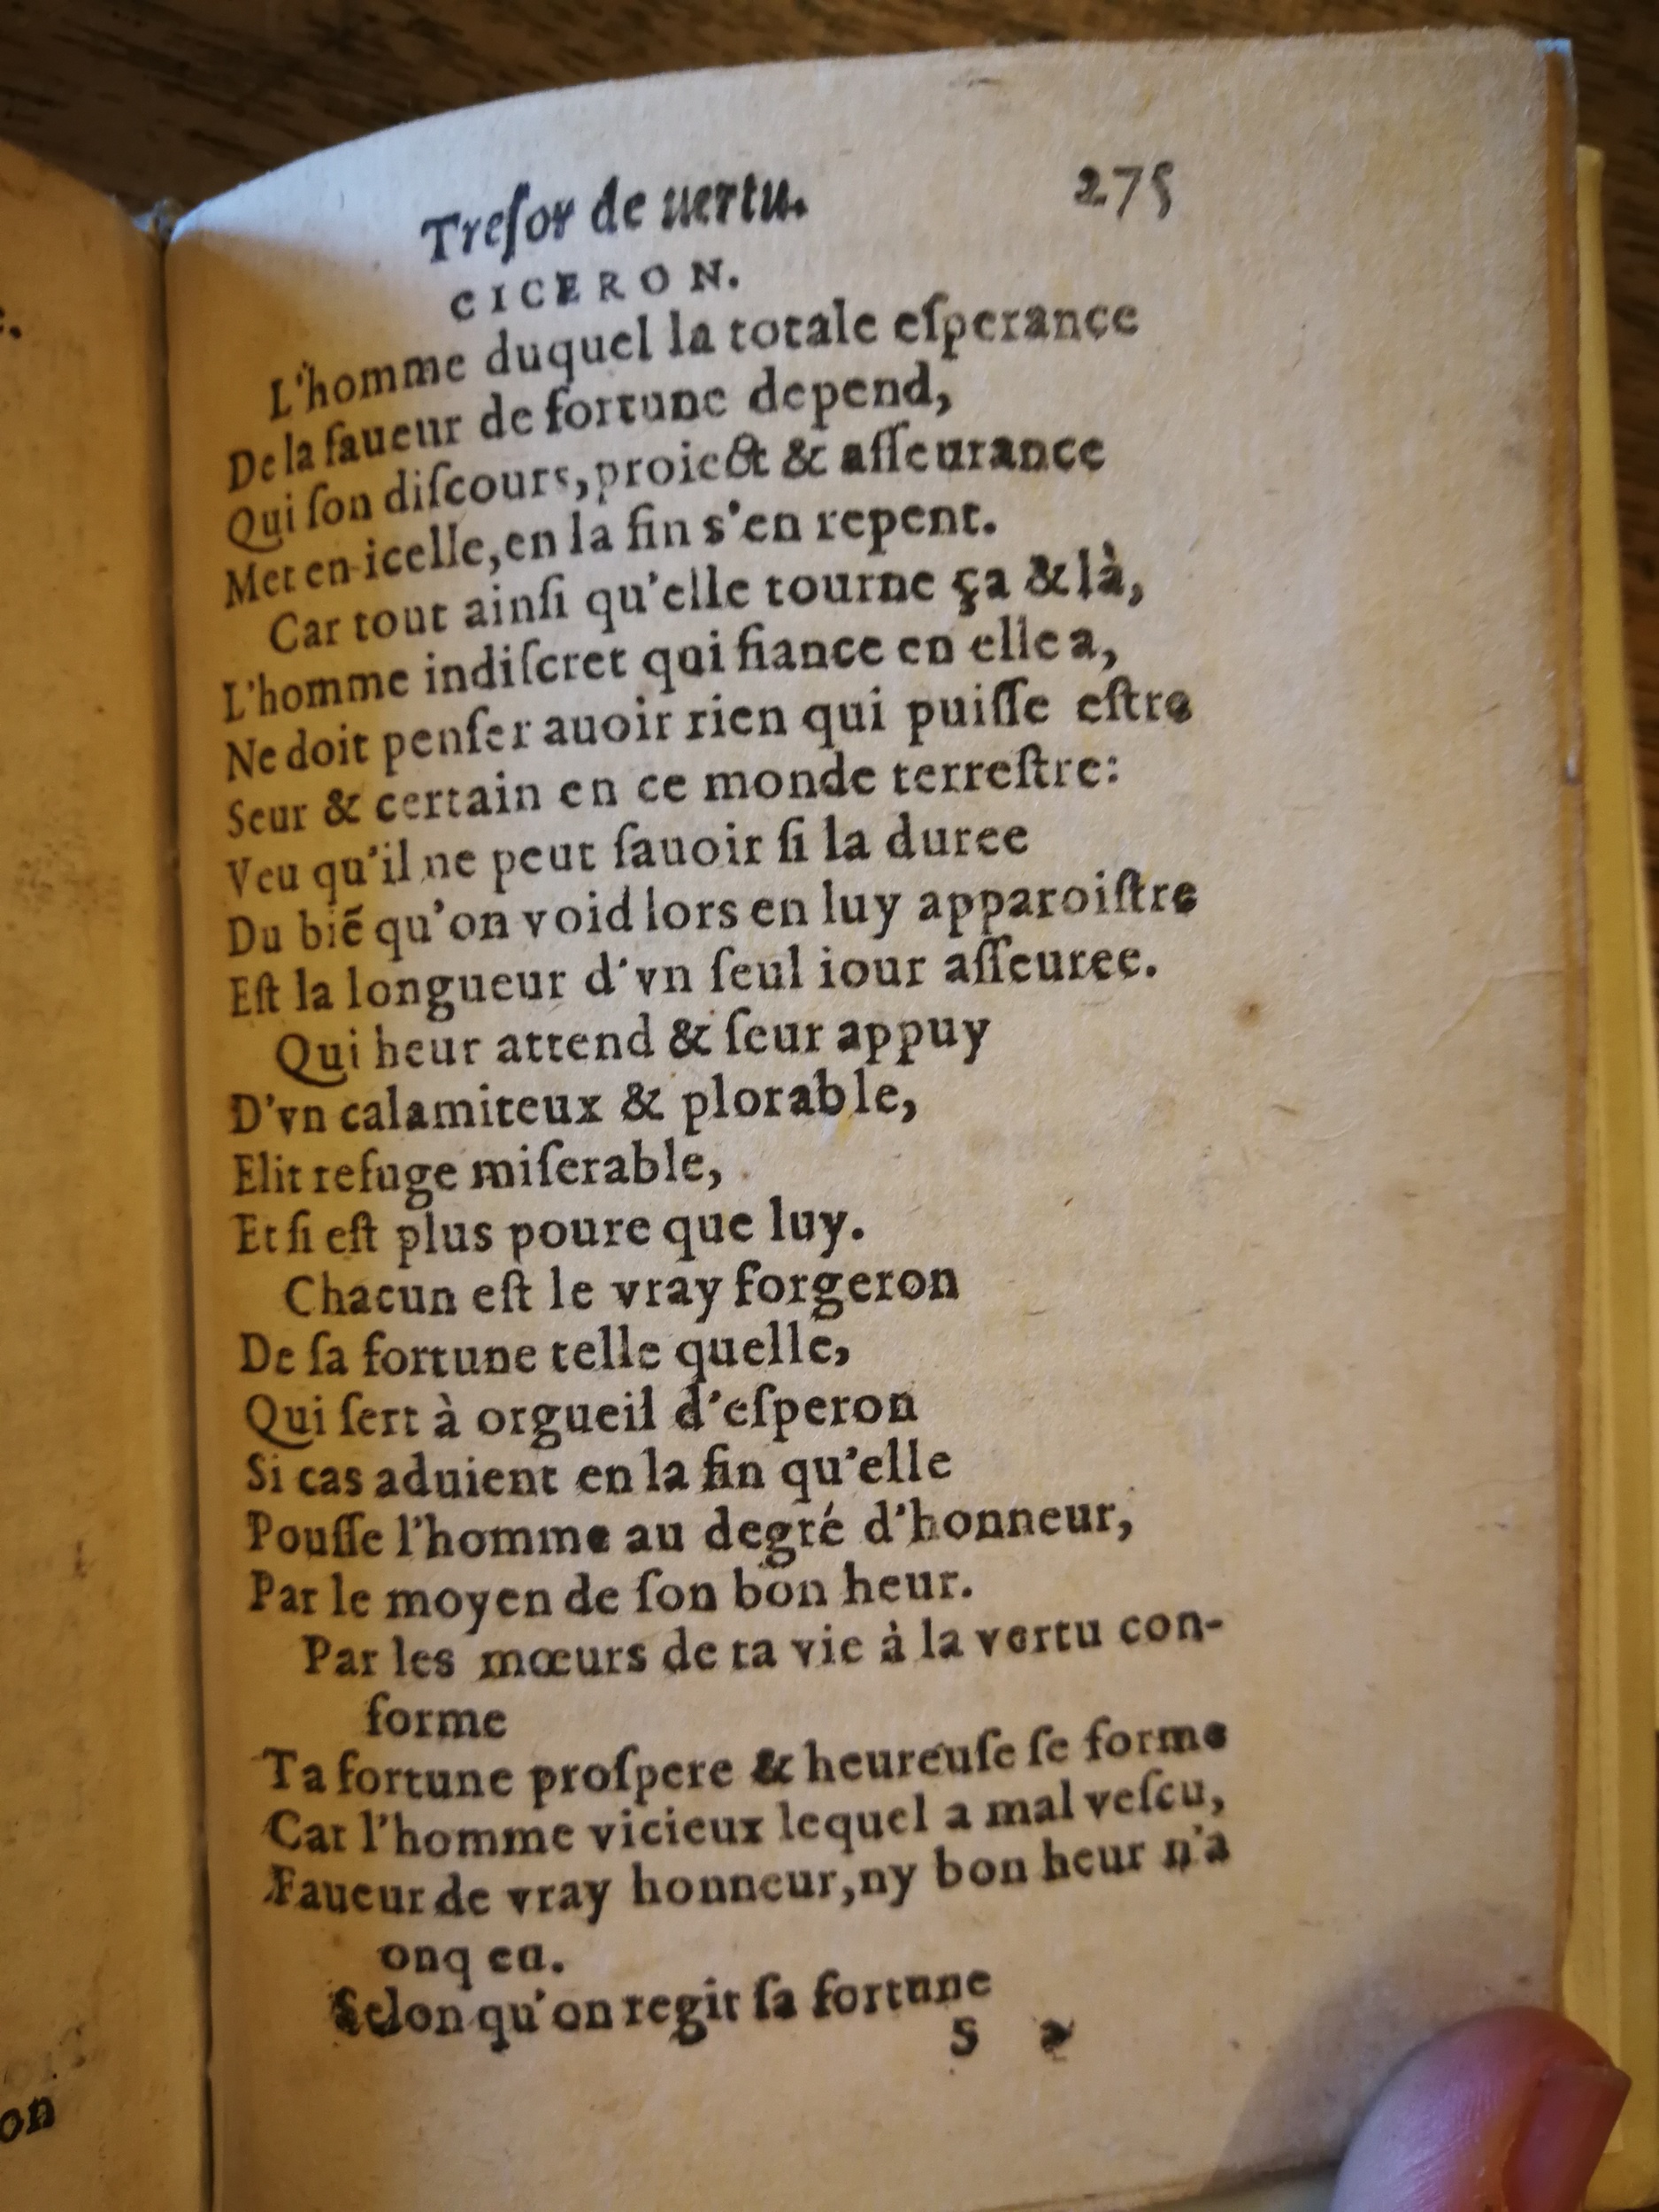 Treſor de uertu. 275
CICERON.
L'homme duquel la totale eſperance
De la faueur de fortune depend,
Qui ſon diſcours, proiect & aſſeurance
Met en icelle, en la fin s'en repent.
Car tout ainſi qu'elle tourne ça & là,
L'homme indiſcret qui fiance en elle a,
Ne doit penſer auoir rien qui puiſſe eſtre
Seur & certain en ce monde terreſtre:
Veu qu'il ne peut ſauoir ſi la duree
Du biẽ qu'on void lors en luy apparoiſtre
Eſt la longueur d'vn ſeul iour aſſeuree.
Qui heur attend & ſeur appuy
D'vn calamiteux & plorable,
Elit refuge miſerable,
Et ſi eſt plus poure que luy.
Chacun eſt le vray forgeron
De ſa fortune telle quelle,
Qui ſert à orgueil d'eſperon
Si cas aduient en la fin qu'elle
Pouſſe l'homme au degré d'honneur,
Par le moyen de ſon bon heur.
Par les mœurs de ta vie à la vertu con-
forme
Ta fortune proſpere & heureuſe ſe forme
Car l'homme vicieux lequel a mal veſcu,
Faueur de vray honneur, ny bon heur n'a
onq eu.
Selon qu'on regit ſa fortune
S 2
on